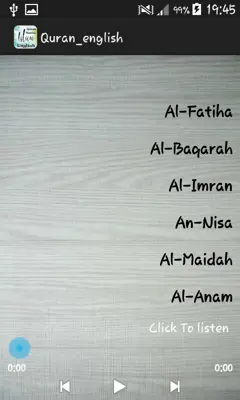 99% 19:45
Quran_english
Al-Fatiha
Al-Baqarah
Al-Imran
An-Nisa
Al-Maidah
Al-Anam
Click To listen
0:00 0:00